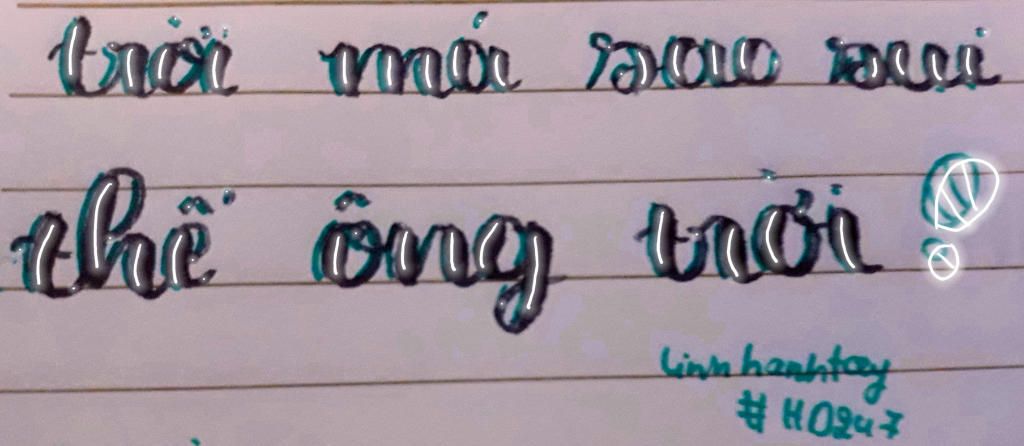 trời mới sao sui
thế ông trời !
linhhanhtay
#H0247